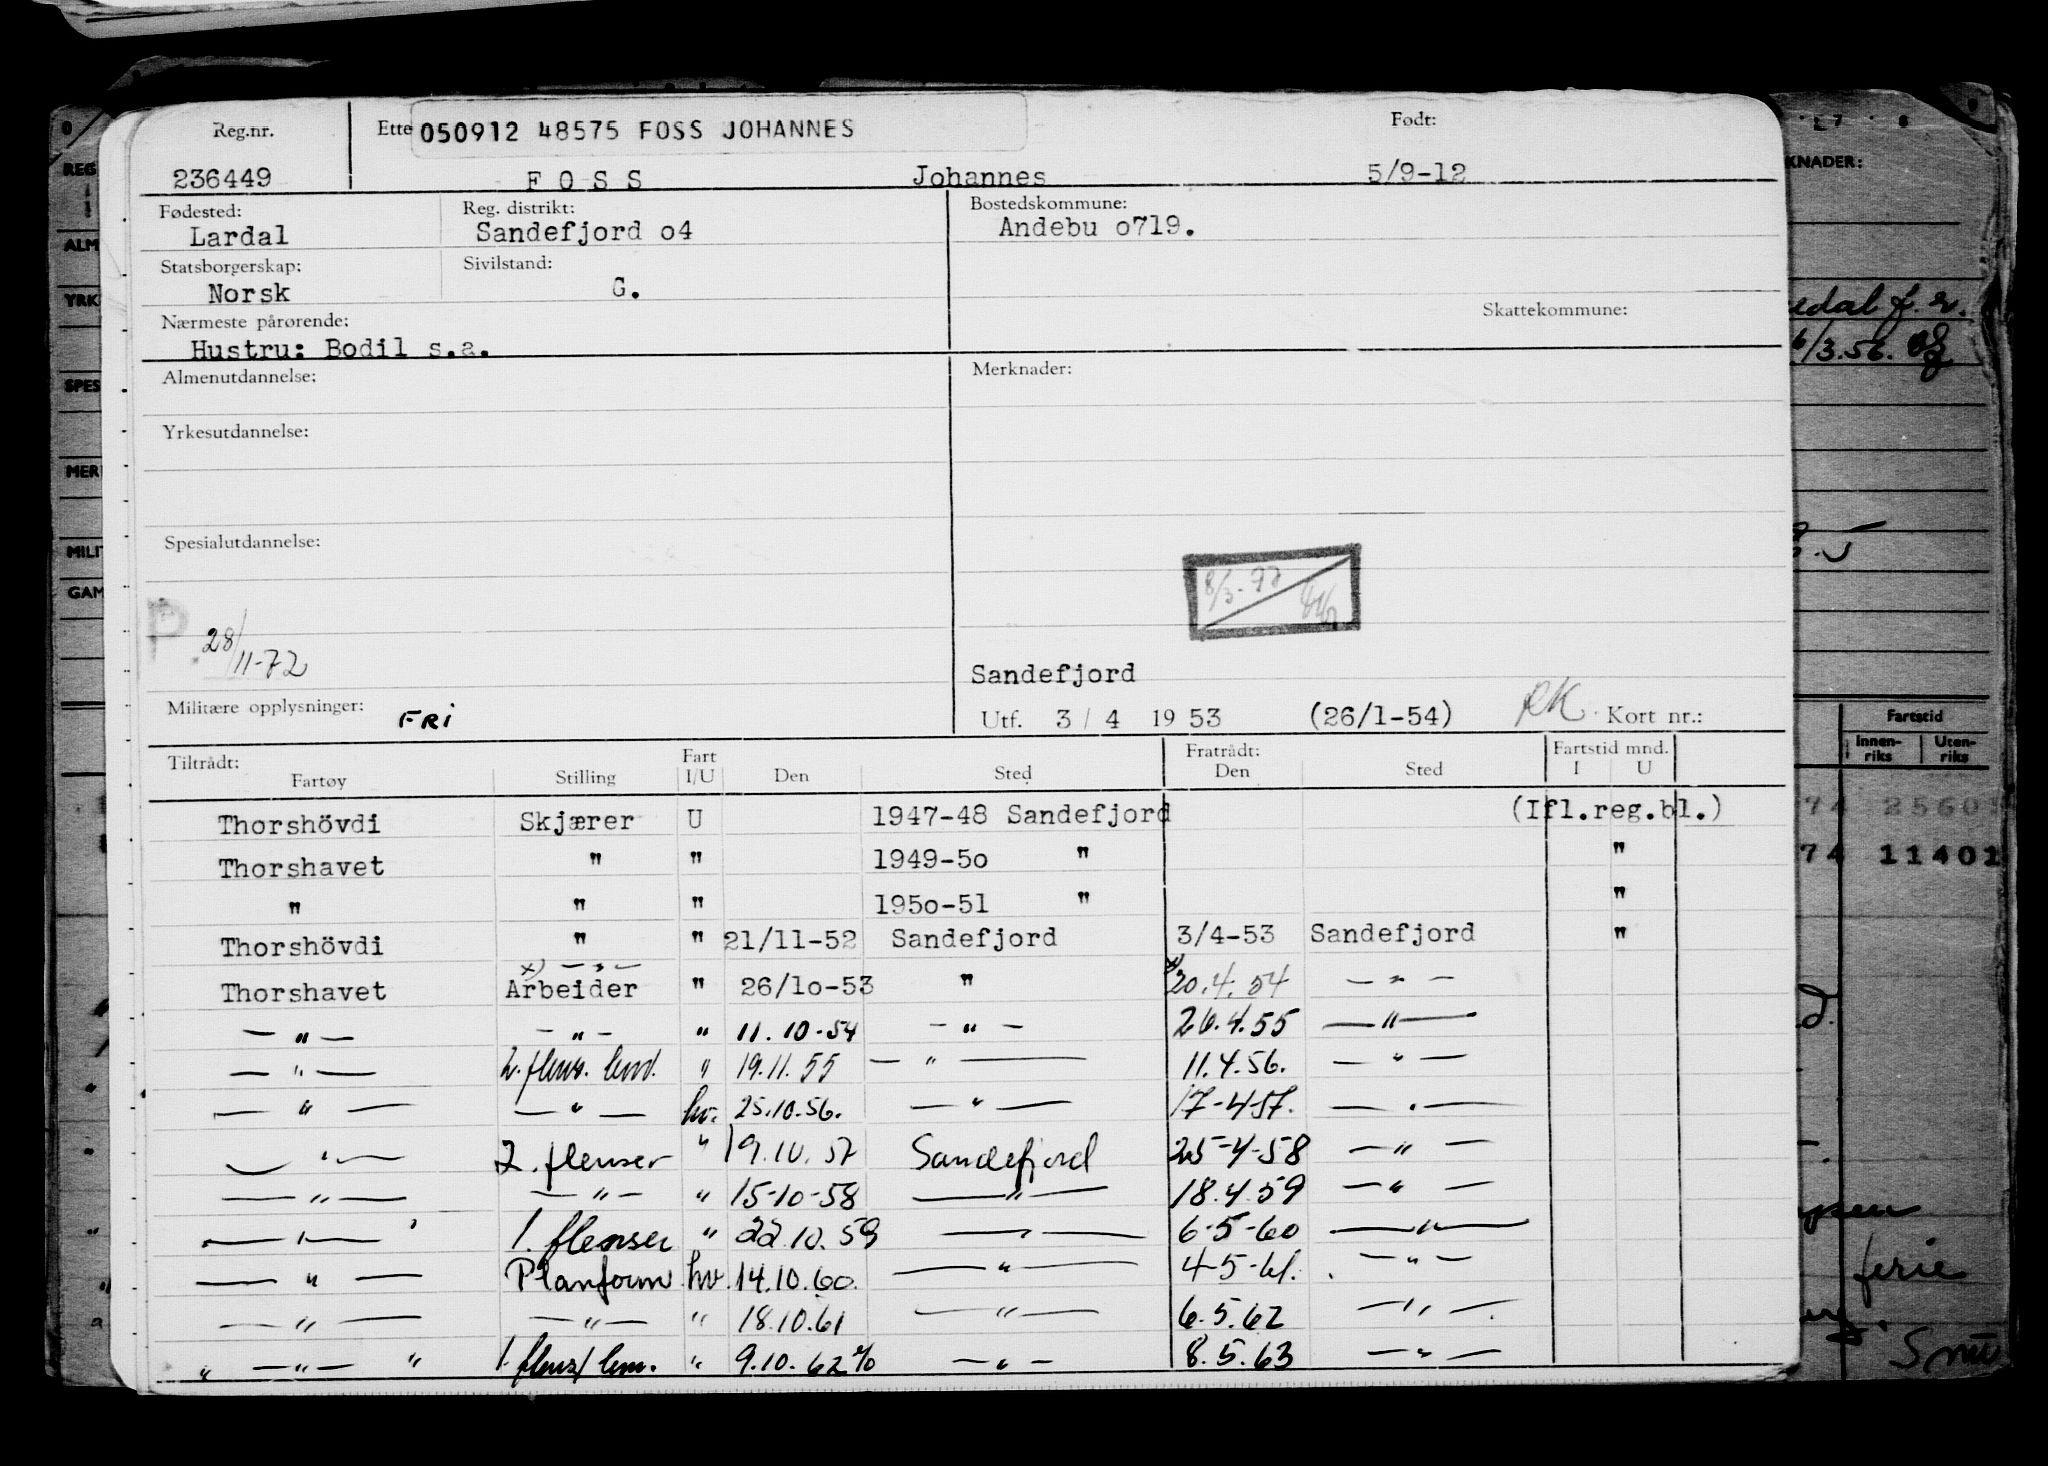 Reg.nr. Ette 050912 48575 FOSS JOHANNES Født:
236449 F O S S Johannes 5/9-12
Fødested: Reg. distrikt: Bostedskommune:
Lardal Sandefjord o4 Andebu o719.
Statsborgerskap: Sivilstand:
Norsk G.
Nærmeste pårørende: Skattekommune:
Hustru: Bodil s.a.
Almenutdannelse: Merknader:
Yrkesutdannelse:
Spesialutdannelse:
P 28/11-72
Sandefjord
Militære opplysninger: FRI Utf. 3 / 4 19 53 (26/1-54) Kort nr.:
Tiltrådt: Fart Fratrådt: Fartstid mnd.
Fartøy Stilling I/U Den Sted Den Sted I U
Thorshövdi Skjærer U 1947-48 Sandefjord (Ifl.reg.bl.)
Thorshavet " " 1949-5o " "
" " " 195o-51 " "
Thorshövdi " " 21/11-52 Sandefjord 3/4-53 Sandefjord "
x) — " —
Thorshavet Arbeider " 26/1o-53 " x) 20.4.54 — " —
— " — — " — " 11.10-54 — " — 26.4.55 — " —
— " — 2. flens. lem. " 19.11.55 — " — 11.4.56. — " —
— " — — " — hv. 25.10.56. — " — 17-4-57. — " —
— " — 2. flenser " 19.10.57 Sandefjord 25-4-58 — " —
— " — — " — " 15-10-58 — " — 18.4.59 — " —
— " — 1. flenser " 22.10.59 — " — 6-5-60 — " —
— " — Planform. hv. 14.10.60. — " — 4-5-61. — " —
— " — — " — " 18.10.61 — " — 6.5.62 — " —
" — " — " 1. flens/lem. " 9.10.62 — " — 8.5.63 — " —
KNADER:
6/3.56.
Fartstid
Innen-riks Uten-riks
74 2560
74 11401
ferie
REG
ALM
YRK
SPES
MER
MILIT
GAM